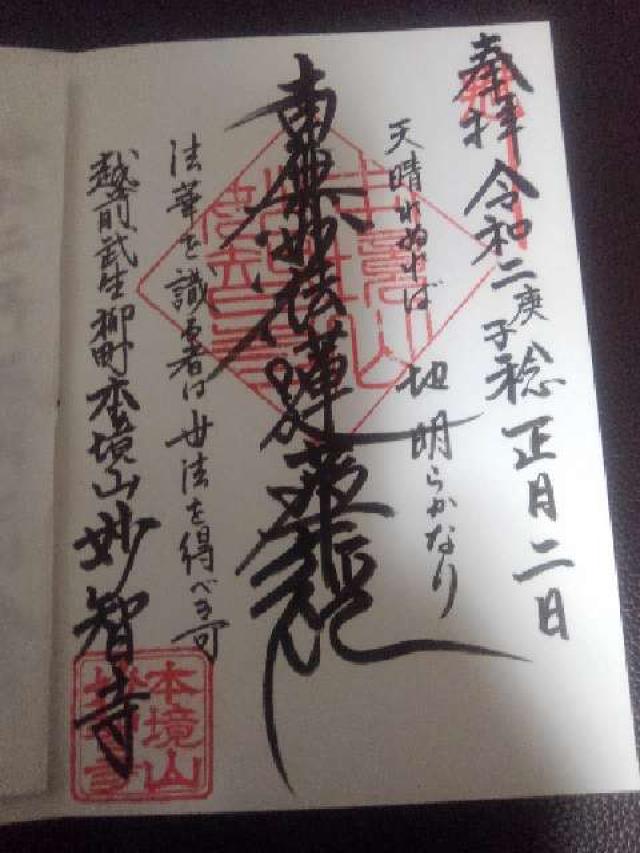 奉拝 令和二庚子稔 正月二日
天晴れぬれば 地明らかなり
南無妙法蓮華経
法華を識る者は世法を得べき可
越前武生柳町本境山妙智寺
本境山
妙智寺